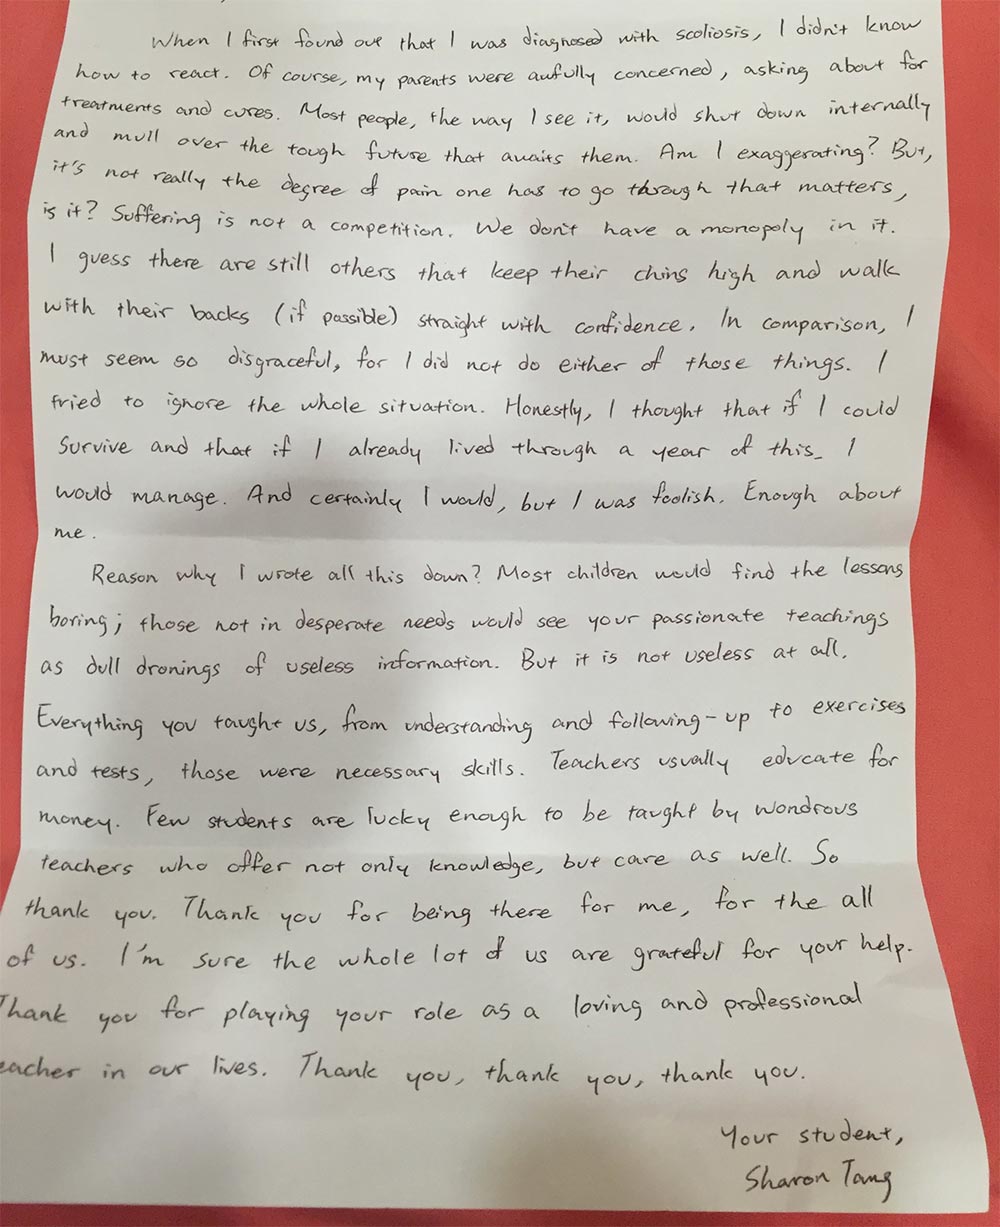 When I first found out that I was diagnosed with scoliosis, I didn't know
how to react. Of course, my parents were awfully concerned, asking about for
treatments and cures. Most people, the way I see it, would shut down internally
and mull over the tough future that awaits them. Am I exaggerating? But,
it's not really the degree of pain one has to go through that matters,
is it? Suffering is not a competition. We don't have a monopoly in it.
I guess there are still others that keep their chins high and walk
with their backs (if possible) straight with confidence. In comparison, I
must seem so disgraceful, for I did not do either of those things. I
tried to ignore the whole situation. Honestly, I thought that if I could
survive and that if I already lived through a year of this, I
would manage. And certainly I would, but I was foolish. Enough about
me.
Reason why I wrote all this down? Most children would find the lessons
boring; those not in desperate needs would see your passionate teachings
as dull dronings of useless information. But it is not useless at all.
Everything you taught us, from understanding and following-up to exercises
and tests, those were necessary skills. Teachers usually educate for
money. Few students are lucky enough to be taught by wondrous
teachers who offer not only knowledge, but care as well. So
thank you. Thank you for being there for me, for the all
of us. I'm sure the whole lot of us are grateful for your help.
Thank you for playing your role as a loving and professional
eacher in our lives. Thank you, thank you, thank you.
Your student,
Sharon Tang